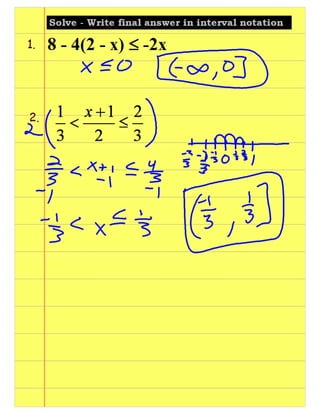 Solve - Write final answer in interval notation
1. 8 - 4(2 - x) ≤ -2x
x ≤ 0 (-∞, 0]
2. 2 ( 1/3 < x+1/2 ≤ 2/3 )
2/3 < x+1 ≤ 4/3
-1 -1 -1
-1/3 < x ≤ 1/3
(-1/3, 1/3]